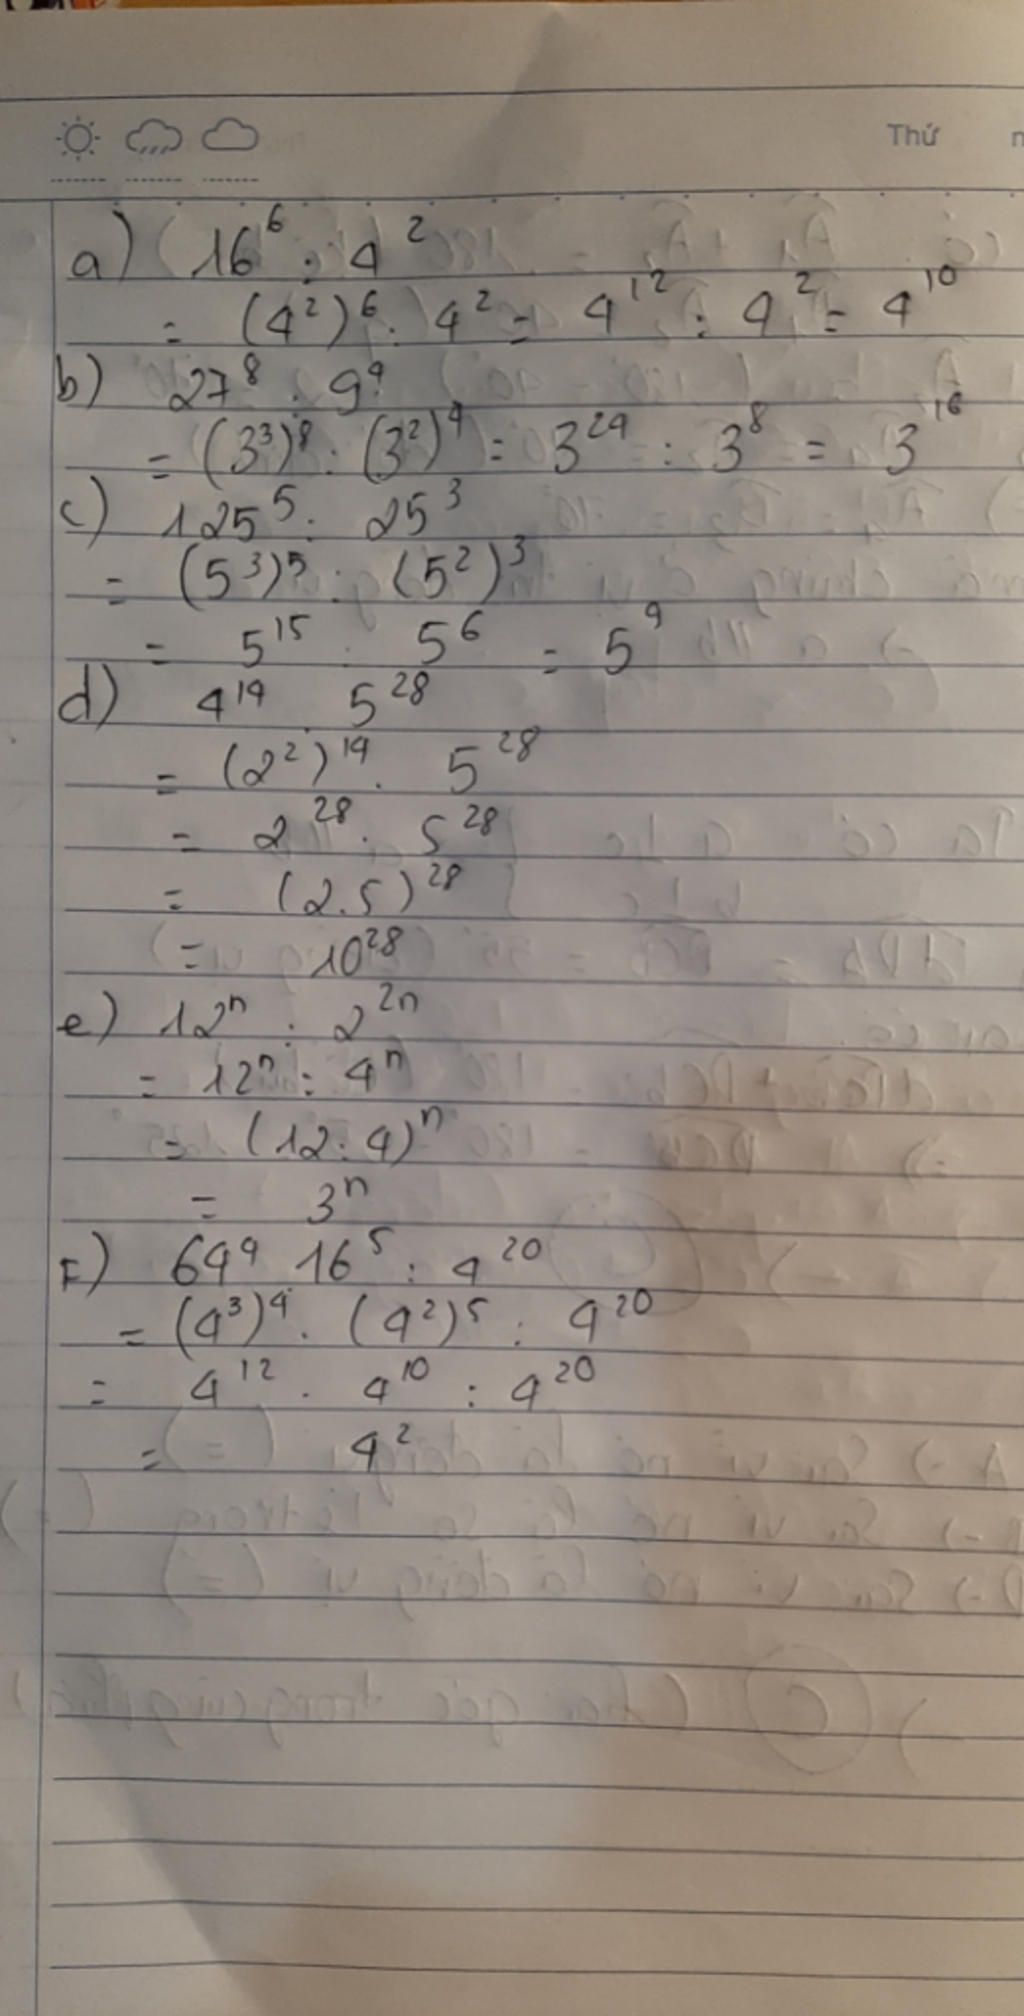 Thứ
a) (16⁶ : 4²
= (4²)⁶ : 4² = 4¹² : 4² = 4¹⁰
b) 27⁸ : 9⁴
= (3³)⁸ : (3²)⁴ = 3²⁴ : 3⁸ = 3¹⁶
c) 125⁵ : 25³
= (5³)⁵ : (5²)³
= 5¹⁵ : 5⁶ = 5⁹
d) 4¹⁴ . 5²⁸
= (2²)¹⁴ . 5²⁸
= 2²⁸ . 5²⁸
= (2.5)²⁸
= 10²⁸
e) 12ⁿ : 2²ⁿ
= 12ⁿ : 4ⁿ
= (12 : 4)ⁿ
= 3ⁿ
F) 64⁴ 16⁵ : 4²⁰
= (4³)⁴ . (4²)⁵ : 4²⁰
= 4¹² . 4¹⁰ : 4²⁰
= 4²